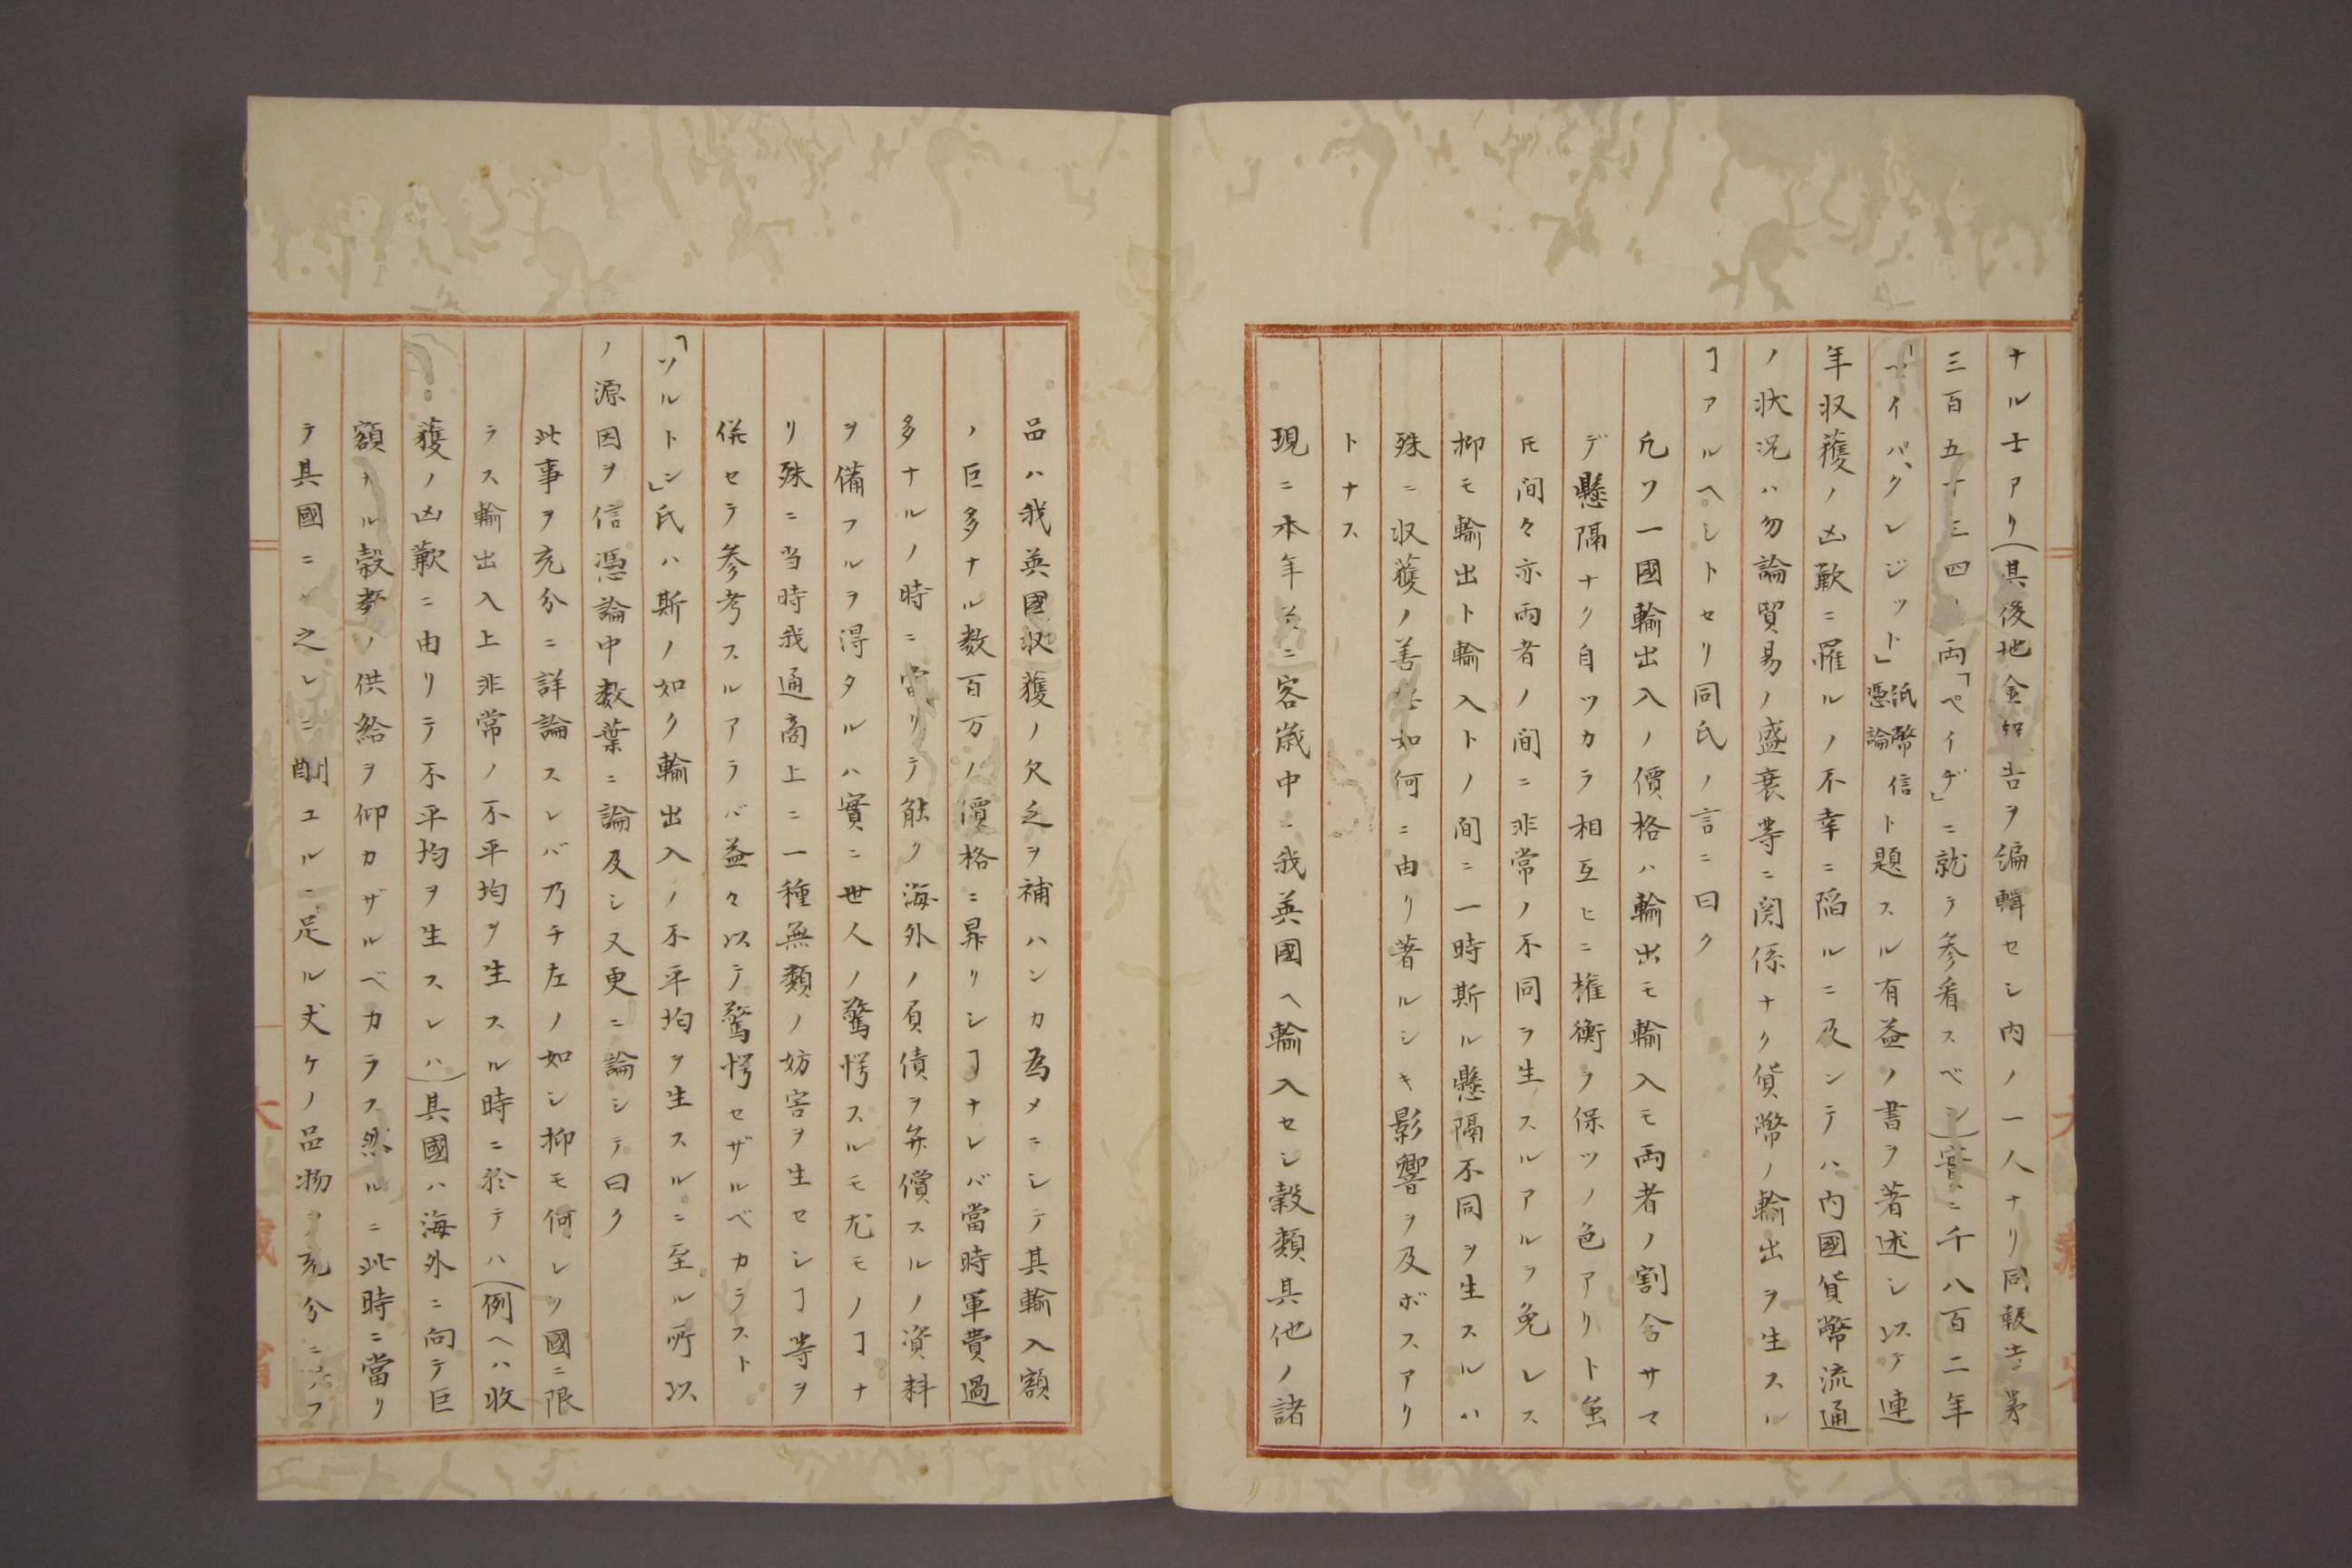 ナル士アリ(其後地金報告ヲ編輯セシ内ノ一人ナリ同報告第
三百五十三四ノ両「ペイヂ」ニ就テ参看スベシ)實ニ千八百二年
「ペイパ、クレジット」紙幣信憑論ト題スル有益ノ書ヲ著述シ以テ連
年収獲ノ凶歉ニ罹ルノ不幸ニ陥ルニ及ンテハ内國貨幣流通
ノ状況ハ勿論貿易ノ盛衰等ニ関係ナク貨幣ノ輸出ヲ生スル
ヿアルヘシトセリ同氏ノ言ニ曰ク
凡ソ一國輸出入ノ價格ハ輸出モ輸入モ両者ノ割合サマ
デ懸隔ナク自ツカラ相互ヒニ権衡ヲ保ツノ色アリト虽
𪜈間々亦両者ノ間ニ非常ノ不同ヲ生スルアルヲ免レス
抑モ輸出ト輸入トノ間ニ一時斯ル懸隔不同ヲ生スルハ
殊ニ収獲ノ善悪如何ニ由リ著ルシキ影響ヲ及ボスアリ
トナス
現ニ本年並ニ客歳中ニ我英國ヘ輸入セシ穀類其他ノ諸
品ハ我英國収獲ノ欠乏ヲ補ハンカ為メニシテ其輸入額
ノ巨多ナル数百万ノ價格ニ昇リシヿナレバ當時軍費過
多ナルノ時ニ當リテ能ク海外ノ負債ヲ弁償スルノ資料
ヲ備フルヲ得タルハ實ニ世人ノ驚愕スルモ尤モノヿナ
リ殊ニ当時我通商上ニ一種無類ノ妨害ヲ生セシヿ等ヲ
併セテ参考スルアラバ益々以テ驚愕セザルベカラスト
「ソルトン」氏ハ斯ノ如ク輸出入ノ不平均ヲ生スルニ至ル所以
ノ源因ヲ信憑論中数葉ニ論及シ又更ニ論シテ曰ク
此事ヲ充分ニ詳論スレバ乃チ左ノ如シ抑モ何レノ國ニ限
ラス輸出入上非常ノ不平均ヲ生スル時ニ於テハ(例ヘハ収
獲ノ凶歉ニ由リテ不平均ヲ生スレハ)其國ハ海外ニ向テ巨
額ナル穀類ノ供給ヲ仰カザルベカラス然ルニ此時ニ當リ
テ其國ニハ之レニ酬ユルニ足ル丈ケノ品物ヲ充分ニ